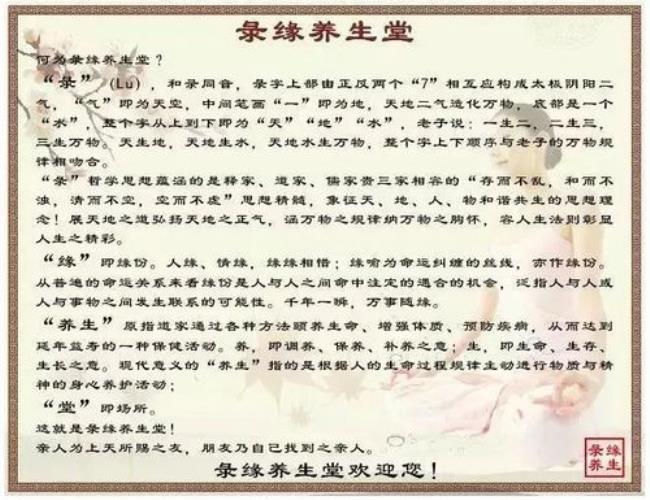 录缘养生堂
何为录缘养生堂？
“录”（Lu），和录同音，录字上部由正反两个“7”相互应构成太极阴阳二
气，“气”即为天空，中间笔画“一”即为地，天地二气造化万物，底部是一个
“水”，整个字从上到下即为“天”“地”“水”，老子说：一生二，二生三，
三生万物。天生地，天地生水，天地水生万物，整个字上下顺序与老子的万物规
律相吻合。
“录”哲学思想蕴涵的是释家、道家、儒家贵三家相容的“存而不乱，和而不
浊，清而不空，空而不虚”思想精髓，象征天、地、人、物和谐共生的思想理
念！展天地之道弘扬天地之正气，涵万物之规律纳万物之胸怀，容人生法则彰显
人生之精彩。
“缘”即缘份。人缘、情缘，缘缘相惜；缘喻为命运纠缠的丝线，亦作缘份。
从普遍的命运关系来看缘份是人与人之间命中注定的遇合的机会，泛指人与人或
人与事物之间发生联系的可能性。千年一瞬，万事随缘。
“养生”原指道家通过各种方法颐养生命、增强体质、预防疾病，从而达到
延年益寿的一种保健活动。养，即调养、保养、补养之意；生，即生命、生存、
生长之意。现代意义的“养生”指的是根据人的生命过程规律主动进行物质与精
神的身心养护活动；
“堂”即场所。
这就是录缘养生堂！
亲人为上天所赐之友，朋友乃自己找到之亲人。
录缘养生堂欢迎您！
录缘
养生